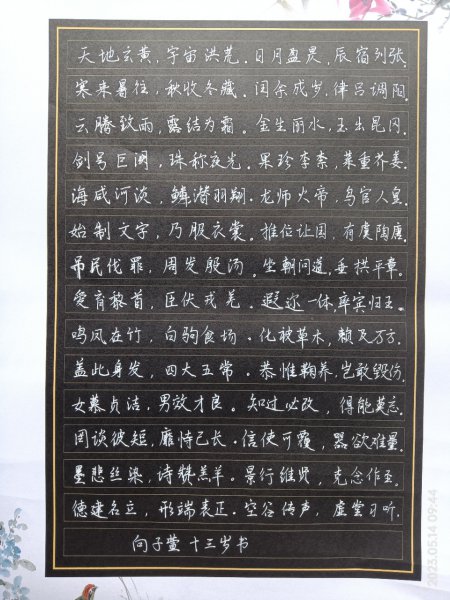 天地玄黄，宇宙洪荒．日月盈昃，辰宿列张．
寒来暑往，秋收冬藏．闰余成岁，律吕调阳．
云腾致雨，露结为霜．金生丽水，玉出昆冈．
剑号巨阙，珠称夜光．果珍李柰，菜重芥姜．
海咸河淡，鳞潜羽翔．龙师火帝，鸟官人皇．
始制文字，乃服衣裳．推位让国，有虞陶唐．
吊民伐罪，周发殷汤．坐朝问道，垂拱平章．
爱育黎首，臣伏戎羌．遐迩一体，率宾归王．
鸣凤在竹，白驹食场．化被草木，赖及万方．
盖此身发，四大五常．恭惟鞠养，岂敢毁伤．
女慕贞洁．男效才良。知过必改，得能莫忘．
罔谈彼短，靡恃己长．信使可覆，器欲难量．
墨悲丝染，诗赞羔羊．景行维贤，克念作圣．
德建名立，形端表正．空谷传声，虚堂习听．
向子萱 十三岁书
2023.05.14 09:44